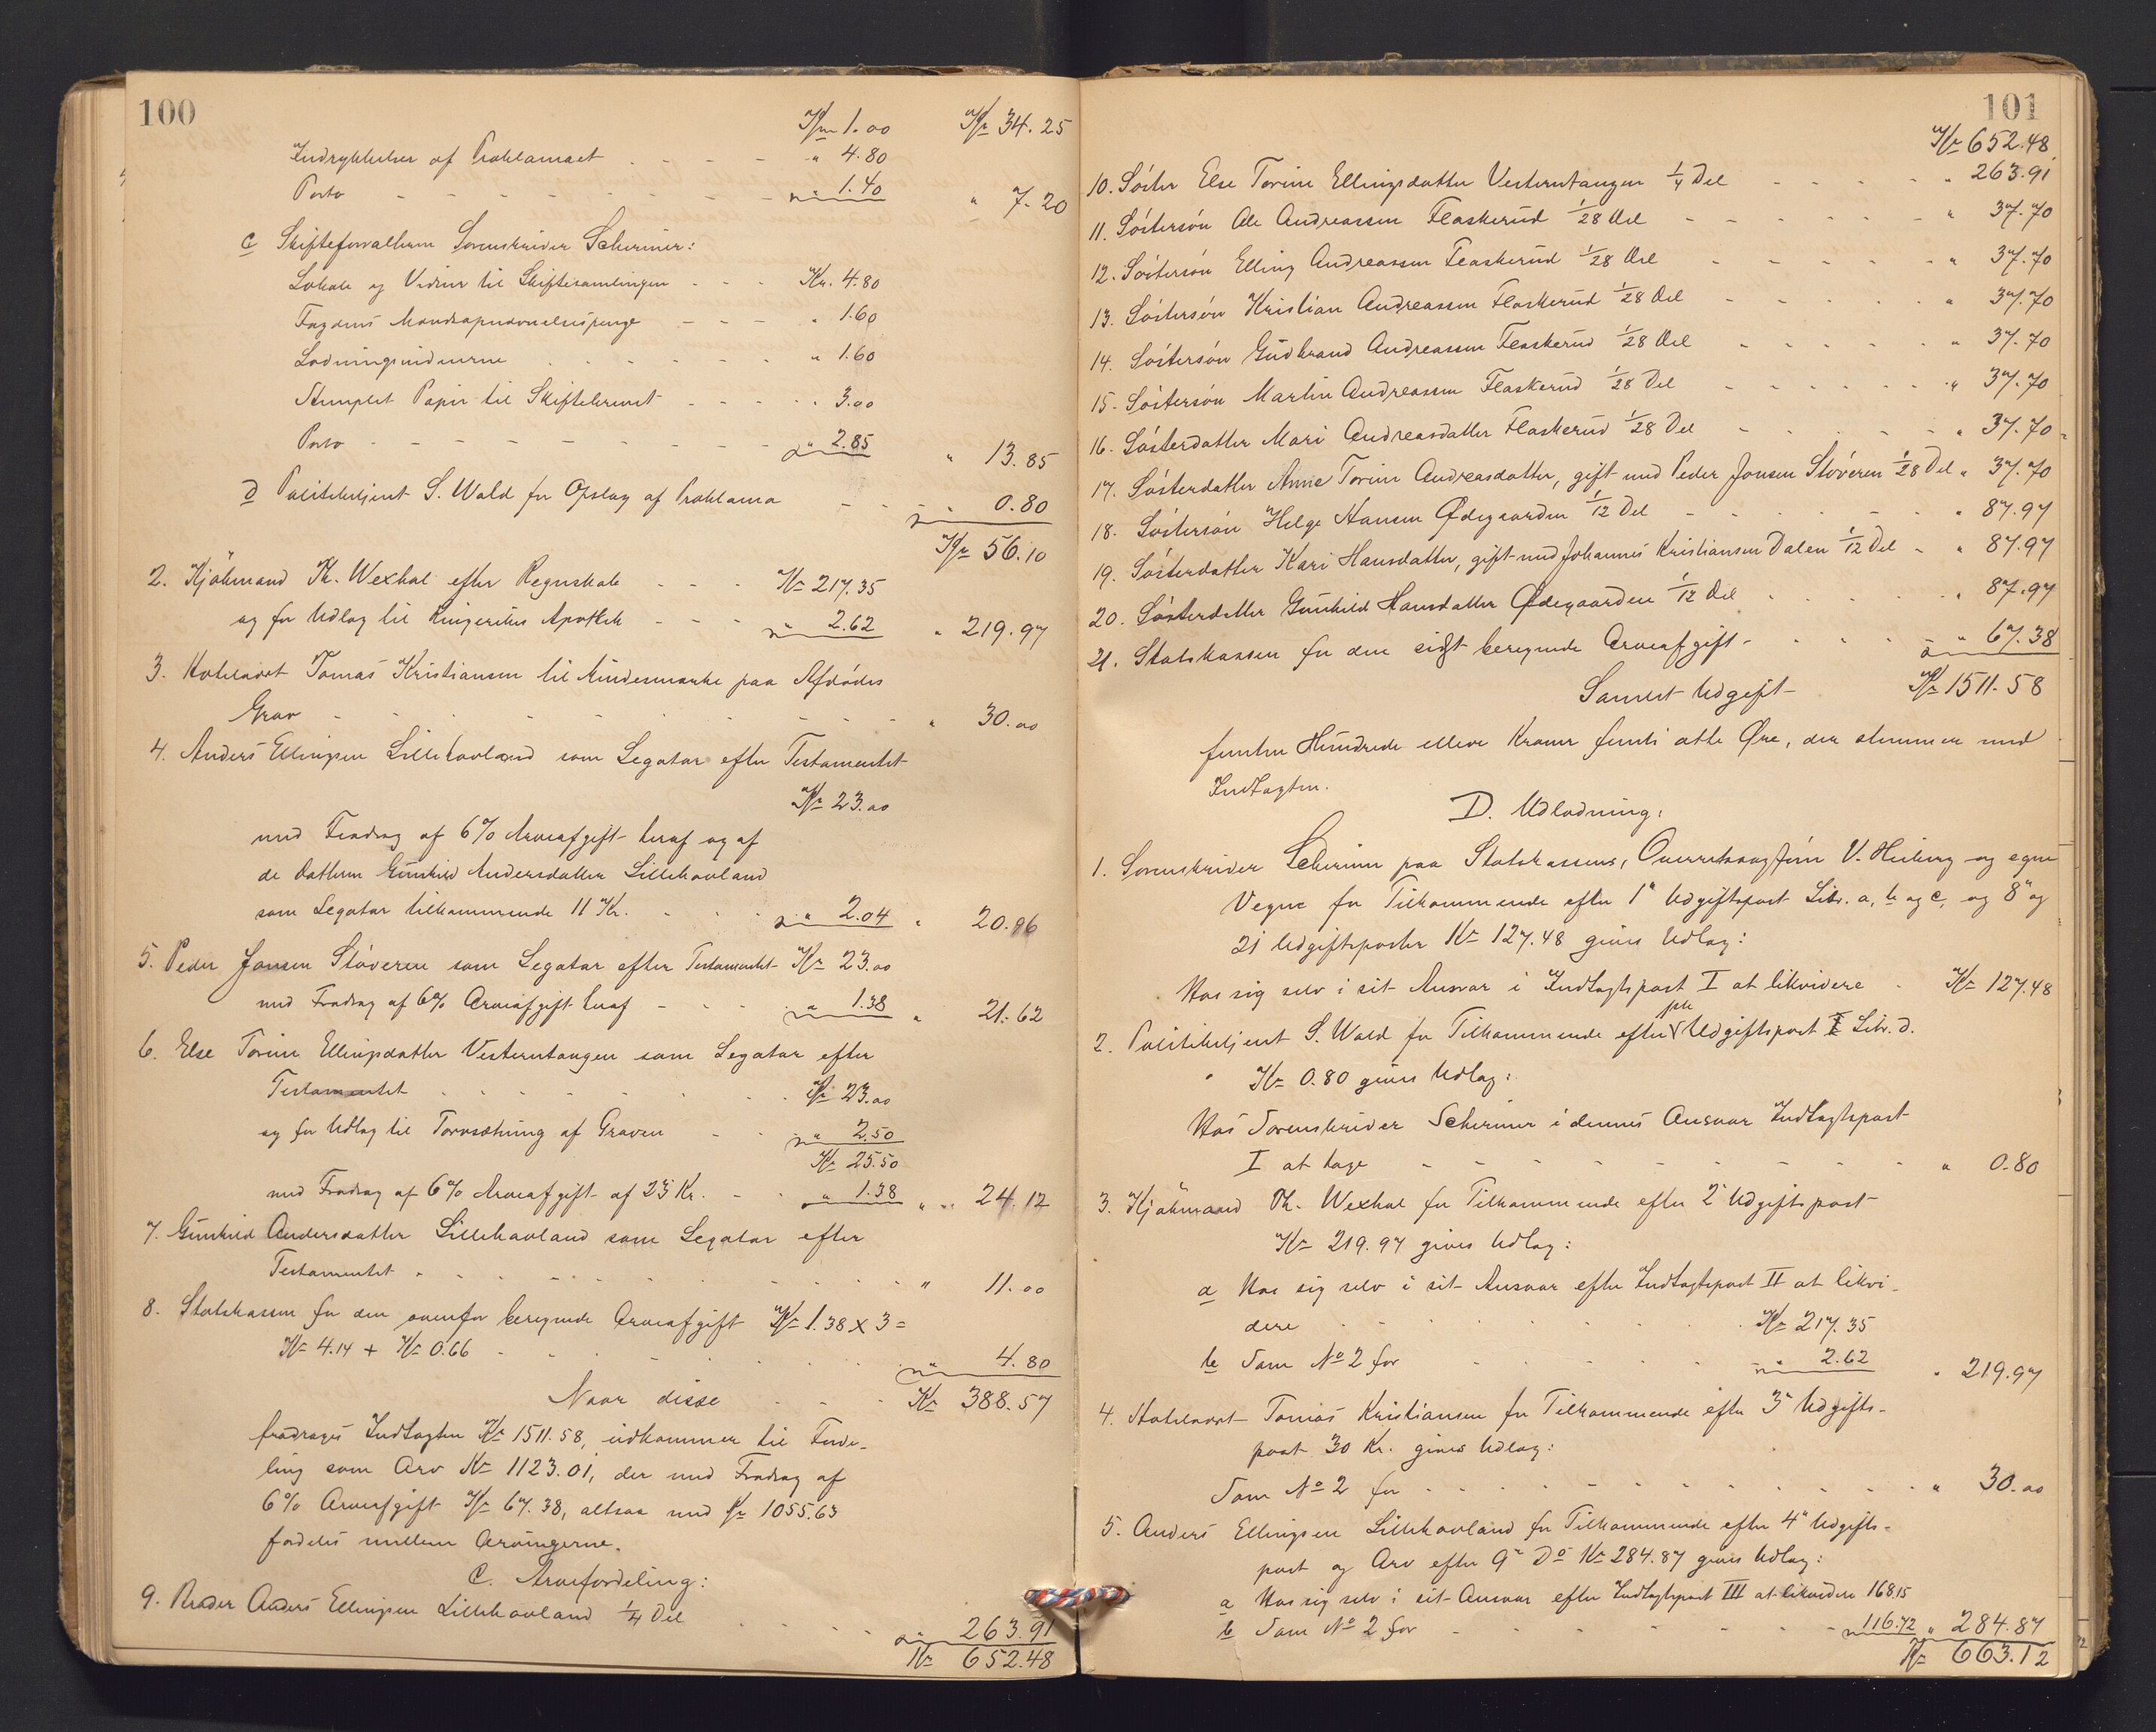 100
Kr 1.00 Kr 34.25
Indrykkelser af Proklamaet - - - " 4.80
Porto - - - - - - " 1.40 " 7.20
c Skifteforvalteren Sorenskriver Scheriner:
Lokale og Vidner til Skiftesamlingen - - - Kr. 4.80
Fogdens - - - " 1.60
Lodningsvidnerne - - - " 1.60
Stemplet Papir til Skiftebrevet - - - " 3.00
Porto - - - - - - " 2.85 " 13.85
d Politibetjent S. Wald for Opslag af Proklama - - - " 0.80
Kr 56.10
2. Kjøbmand Th. Wexhal efter Regnskab - - - Kr 217.35
og for Udlæg til Ringerikes Apothek - - - " 2.62 " 219.97
3. Tomas Kristiansen til Mindesmærke paa Afdødes
Grav - - - - - - " 30.00
4. Anders Ellingsen Lillehavland som Legatar efter Testamentet
Kr 23.00
med Fradrag af 6% Arveafgift heraf og af
de Datteren Gunhild Andersdatter Lillehavland
som Legatar tilkommende 11 Kr. - - - " 2.04 " 20.96
5. Peder Jonsen Støveren som Legatar efter Testamentet Kr 23.00
med Fradrag af 6% Arveafgift heraf - - - " 1.38 " 21.62
6. Else Torine Ellingsdatter Vesterntangen som Legatar efter
Testamentet - - - Kr 23.00
og for Udlæg til Torvsætning af Graven - - " 2.50
Kr 25.50
med Fradrag af 6% Arveafgift af 23 Kr. - - " 1.38 " 24.12
7. Gunhild Andersdatter Lillehavland som Legatar efter
Testamentet - - - - - - " 11.00
8. Statskassen for den ovenfor beregnede Arveafgift Kr 1.38 x 3 =
Kr 4.14 + Kr 0.66 - - - " 4.80
Naar disse - - - Kr 388.57
fradrages Indtægten Kr 1511.58, udkommer til Forde-
ling som Arv Kr 1123.01, der med Fradrag af
6% Arveafgift Kr 67.38, altsaa med Kr 1055.63
fordeles mellem Arvingerne.
C. Arvefordeling:
9. Broder Anders Ellingsen Lillehavland 1/4 Del - - - " 263.91
Kr 652.48
101
Kr 652.48
10. Søster Else Torine Ellingsdatter Vesterntangen 1/4 Del - - - " 263.91
11. Søstersøn Ole Andreassen Flaskerud 1/28 Del - - - " 37.70
12. Søstersøn Elling Andreassen Flaskerud 1/28 Del - - - " 37.70
13. Søstersøn Kristian Andreassen Flaskerud 1/28 Del - - - " 37.70
14. Søstersøn Gudbrand Andreassen Flaskerud 1/28 Del - - - " 37.70
15. Søstersøn Martin Andreassen Flaskerud 1/28 Del - - - " 37.70
16. Søsterdatter Mari Andreasdatter Flaskerud 1/28 Del - - - " 37.70
17. Søsterdatter Anne Torine Andreasdatter, gift med Peder Jonsen Støveren 1/28 Del " 37.70
18. Søstersøn Helge Hansen Ødegaarden 1/12 Del - - - " 87.97
19. Søsterdatter Kari Hansdatter, gift med Johannes Kristiansen Dalen 1/12 Del - " 87.97
20. Søsterdatter Gunhild Hansdatter Ødegaarden 1/12 Del - - - " 87.97
21. Statskassen for den sidst beregnede Arveafgift - - - " 67.38
Samlet Udgift Kr 1511.58
femten Hundrede elleve Kroner femti otte Øre, der stemmer med
Indtægten.
D. Udlodning:
1. Sorenskriver Scheriner paa Statskassens, Overretssagfører V. Heiberg og egne
Vegne for Tilkommende efter 1" Udgiftspost Litr. a, b og c, og 8" og
21 Udgiftsposter Kr 127.48 gives Udlæg:
Hos sig selv i sit Ansvar i Indtægtspost I at likvidere - Kr 127.48
2. Politibetjent S. Wald for Tilkommende efter 1ste Udgiftspost Litr. d.
Kr 0.80 gives Udlæg:
Hos Sorenskriver Scheriner i dennes Ansvar Indtægtspost
I at tage - - - - - - " 0.80
3. Kjøbmand Th. Wexhal for Tilkommende efter 2" Udgiftspost
Kr 219.97 gives Udlæg:
a Hos sig selv i sit Ansvar efter Indtægtspost II at likvi-
dere - - - Kr 217.35
b Som No 2 for - - - " 2.62 " 219.97
4. Tomas Kristiansen for Tilkommende efter 3" Udgifts-
post 30 Kr. gives Udlæg:
Som No 2 for - - - - - - " 30.00
5. Anders Ellingsen Lillehavland for Tilkommende efter 4" Udgifts-
post og Arv efter 9" Do Kr 284.87 gives Udlæg:
a Hos sig selv i sit Ansvar efter Indtægtspost III at likvidere 168.15
b Som No 2 for - - - " 116.72 " 284.87
Kr 663.12